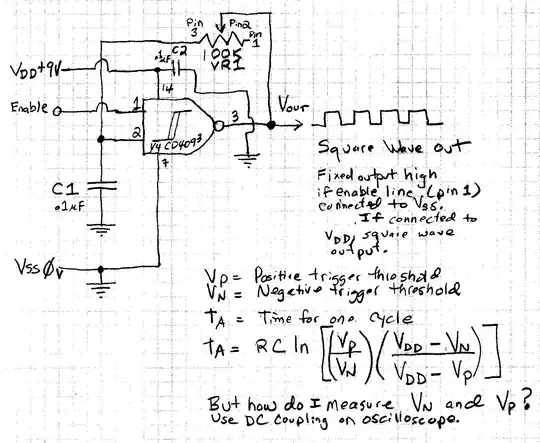 Pin 3
Pin2
Pin 1
100K
VR1
C2
.1µF
VDD+9V
14
Enable
1
2
3
1/4 CD4093
7
VOUT
C1
.1µF
VSS 0V
Square Wave out
Fixed output high
if enable line (pin 1)
connected to VSS.
If connected to
VDD, square wave
output.
VP = Positive trigger threshold
VN = Negative trigger threshold
tA = Time for one cycle
tA = RC ln [(VP/VN)(VDD - VN/VDD - VP)]
But how do I measure VN and VP?
Use DC coupling on oscilloscope.